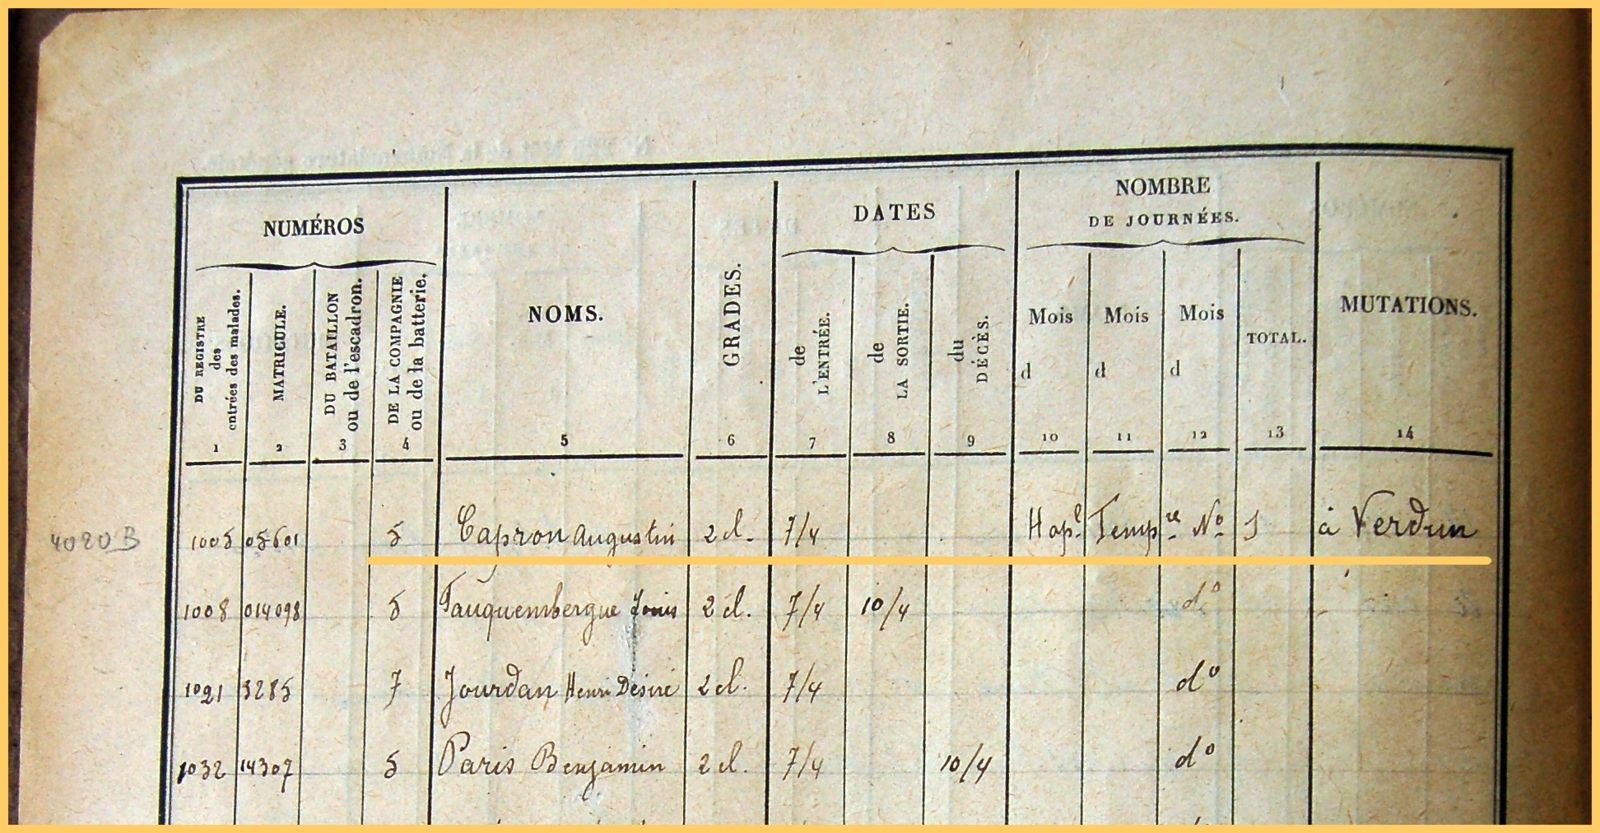 NUMÉROS
DU REGISTRE des entrées des malades.
MATRICULE.
DU BATAILLON ou de l'escadron.
DE LA COMPAGNIE ou de la batterie.
NOMS.
GRADES.
DATES
de L'ENTRÉE.
de LA SORTIE.
du DÉCÈS.
NOMBRE
DE JOURNÉES.
Mois d
Mois d
Mois d
TOTAL.
MUTATIONS.
1 2 3 4 5 6 7 8 9 10 11 12 13 14
4080B 1005 05601 5 Capron Augustin 2 cl. 7/4 Hopl. Tempre No 5 à Verdun
1008 014098 5 Fauquembergue 2 cl. 7/4 10/4 do
1021 3285 7 Jourdan Henri Désiré 2 cl. 7/4 do
1032 14307 5 Paris Benjamin 2 cl. 7/4 10/4 do